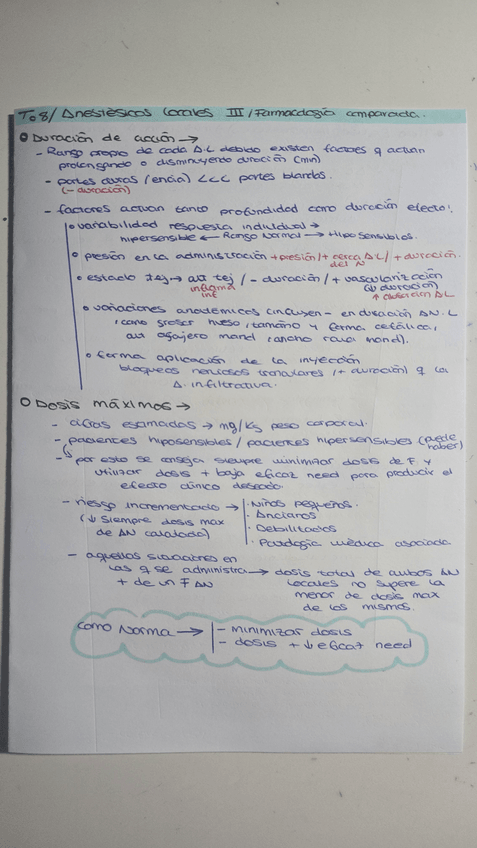 T.08/ Anestésicos Locales III / Farmacología comparada.
Duración de acción →
- Rango propio de cada A.L debido existen factores q actuan
prolongando o disminuyendo duración (min)
- partes duras / encía) <<< partes blandas.
(- duración)
- factores actuan tanto profundidad como duración efecto:
variabilidad respuesta individual →
hipersensible ← Rango Normal → Hiposensibles.
presión en la administración + presión / + cerca A.L / + duración.
del N
estado tej → tej / - duración / + vascularización
inflama (↓ duración)
inf ↑ absorción A.L
variaciones anatómicas (influyen - en duración AN.L
, como grosor hueso, tamaño y forma cefálica,
mand (ancho rama mand).
forma aplicación de la inyección
bloqueos nerviosos tronculares (+ duración) q la
A. infiltrativa.
Dosis máximas →
- cifras estimadas → mg/kg peso corporal.
- pacientes hiposensibles / pacientes hipersensibles (puede
haber)
por esto se aconseja siempre minimizar dosis de F y
utilizar dosis + baja eficaz need para producir el
efecto clínico deseado.
- riesgo incrementado → · Niños pequeños.
(↓ siempre dosis max · Ancianos
de AN calculada) · Debilitados
· Patología médica asociada
- aquellas situaciones en
las q se administra → dosis total de ambos AN
+ de un F AN locales no supere la
menor de dosis max
de los mismos.
como Norma → - minimizar dosis
- dosis + ↓ eficaz need